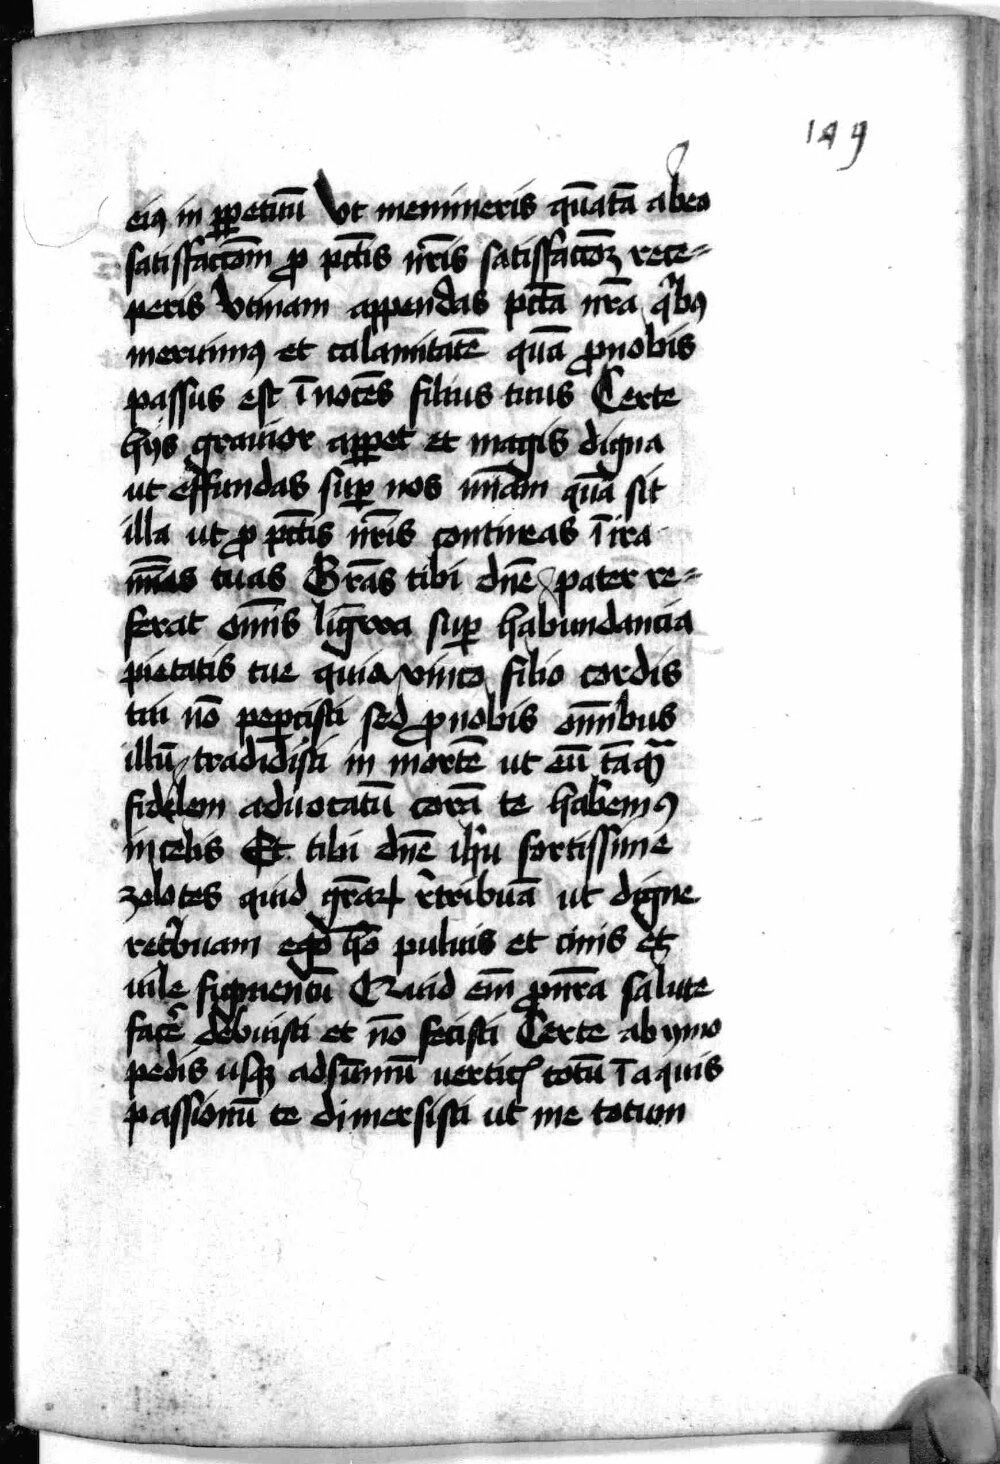 149
eiꝰ in ꝑpetuū Vt memineris quātā ab eo
satisfactōm ꝓ pctīs nr̄is satisfactōꝫ rece-
peris Vtinam appendas pctā nr̄a qͥbꝰ
meruimꝰ et calamitatē quā ꝓ nobis
passus est īnocēs filius tuus Certe
hijs grauior apꝑet et magis digna
ut effundas suꝑ nos mīam quā sit
illa ut ꝓ pctīs nr̄is contineas ī ira
mīas tuas Gr̄as tibi dn̄e pater re-
ferat om̄is ligwa suꝑ habundancia
pietatis tue quia vnico filio cordis
tui nō peꝑcisti sed ꝓ nobis om̄ibus
illū tradidisti in mortē ut eū tāqͣ
fidelem aduocatū corā te habemꝰ
in celis Et tibi dn̄e ihū fortissime
zelotes quid gr̄aꝝ rͤtribuā ut digne
retͥbuam ego hō puluis et cinis et
uile figmentū Quid em̄ ꝓ nr̄a salute
facͤe debuisti et nō fecisti Certe ab ymo
pedis usqꝫ ad sūmū uerticꝭ totū ī aquis
passionū te dimersisti ut me totum